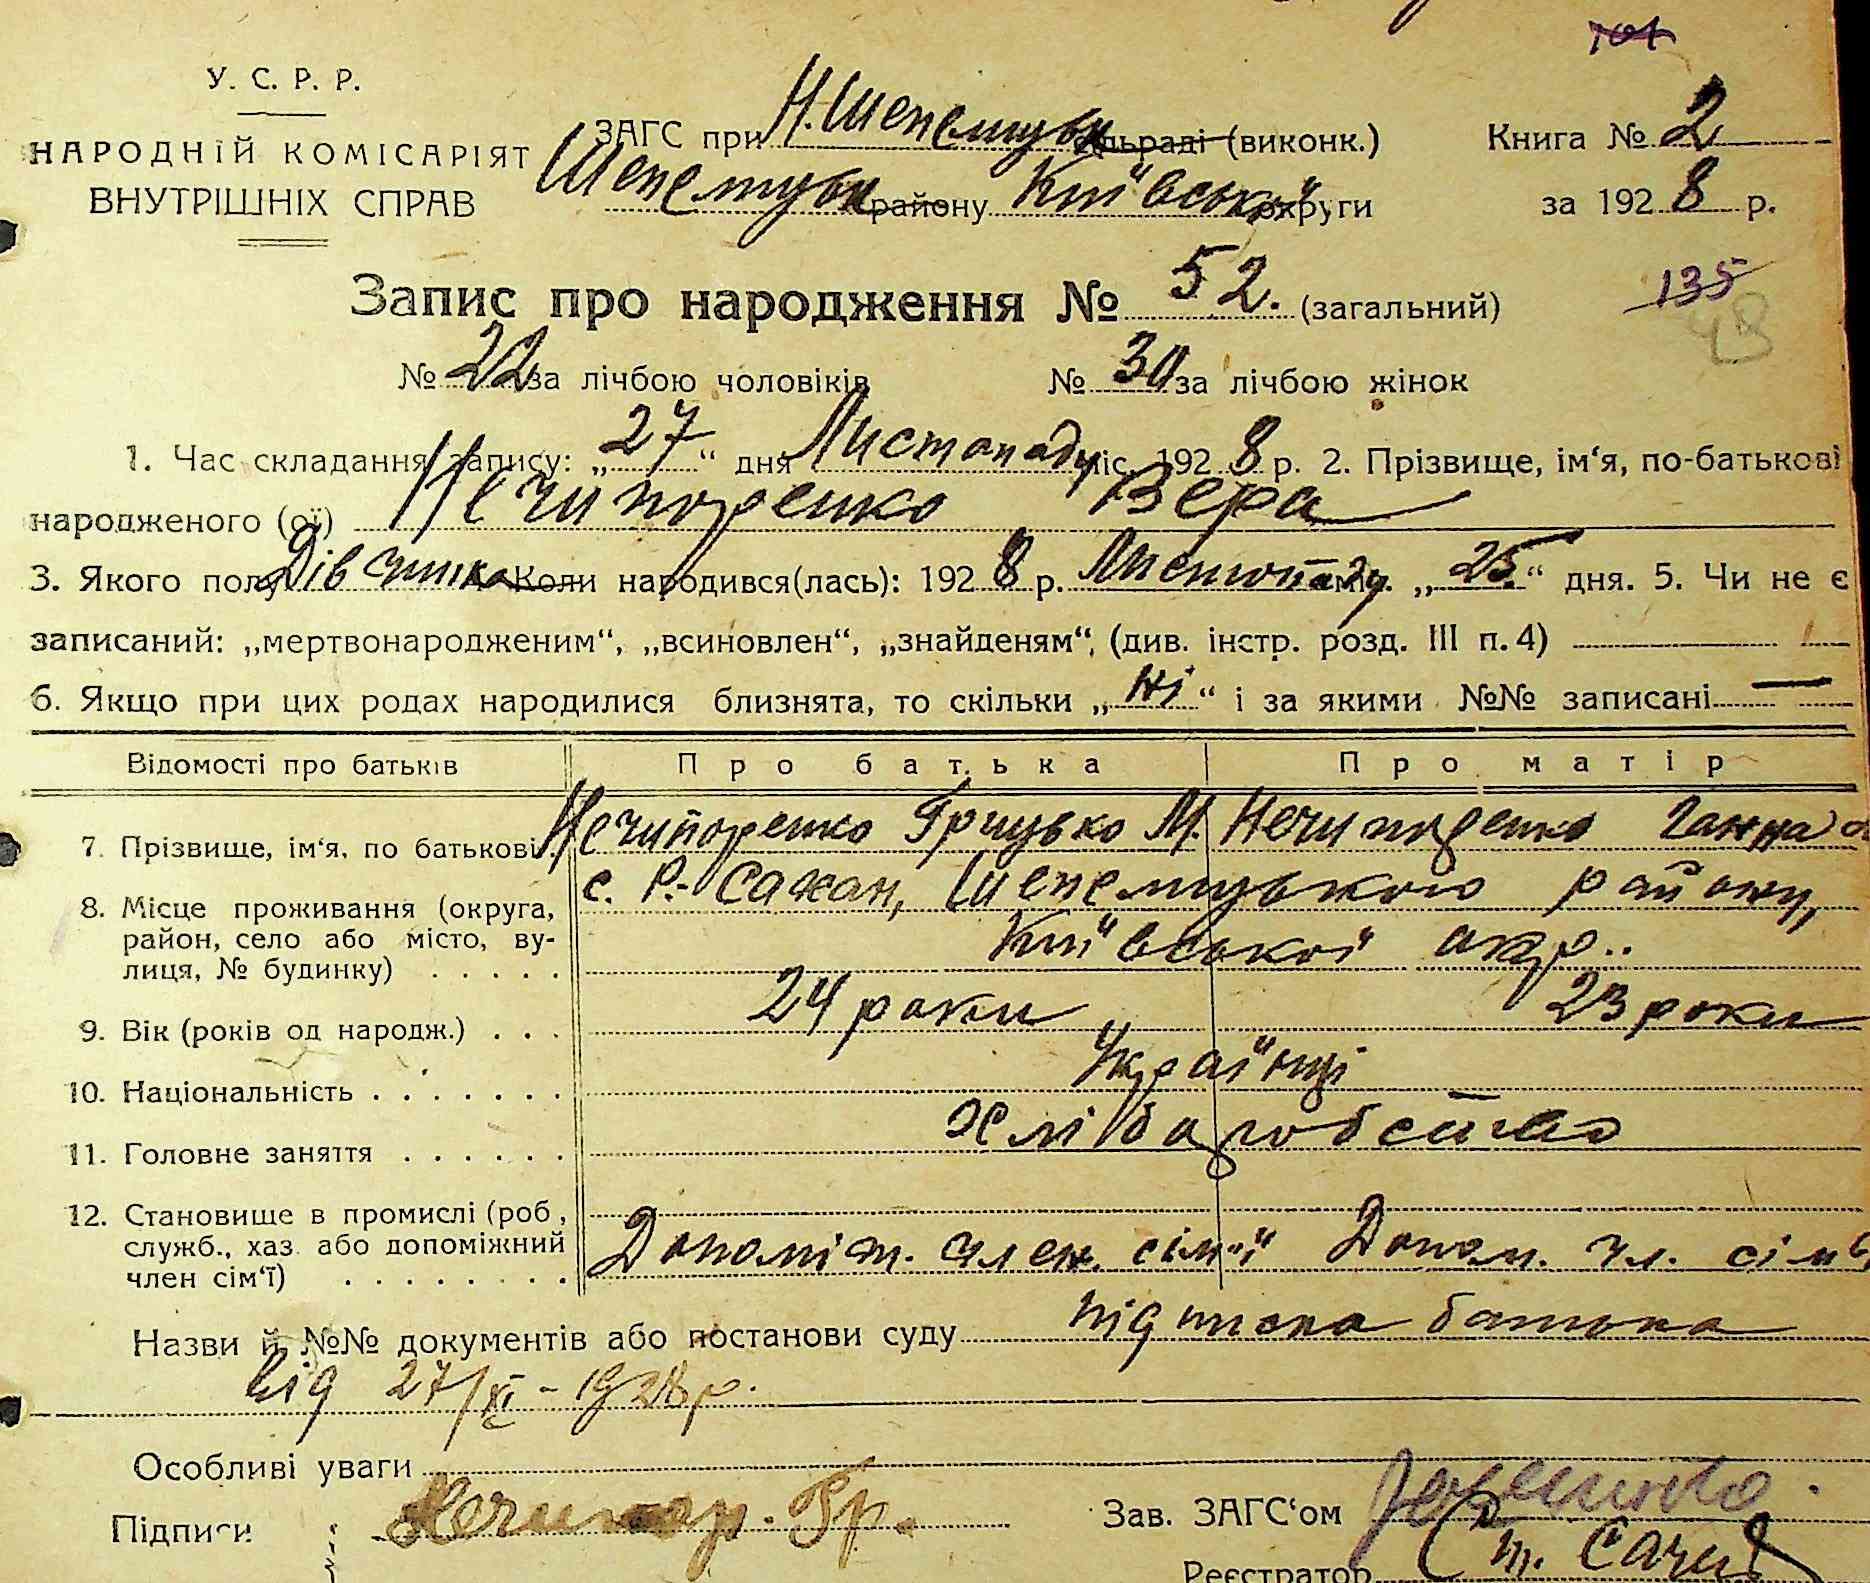 101
У. С. Р. Р.
НАРОДНІЙ КОМІСАРІЯТ
ВНУТРІШНІХ СПРАВ
ЗАГС при Н. Шепелицьк сільраді (виконк.)
Шепелицьк району Київської округи
Книга № 2
за 1928 р.
Запис про народження № 52. (загальний)
135
48
№ 22 за лічбою чоловіків № 30 за лічбою жінок
1. Час складання запису: „27“ дня Листопаду міс. 1928 р. 2. Прізвище, ім‘я, по-батькові
народженого (ої) Нечипоренко Вера
3. Якого полу Дівчинка Коли народився(лась): 1928 р. Листопаду міс. „25.“ дня. 5. Чи не є
записаний: „мертвонародженим“, „всиновлен“, „знайденям“, (див. інстр. розд. III п. 4)
6. Якщо при цих родах народилися близнята, то скільки „ні“ і за якими №№ записані —
Відомості про батьків Про батька Про матір
7. Прізвище, ім‘я, по батькові Нечипоренко Грицько М. Нечипоренко Ганна
8. Місце проживання (округа, район, село або місто, вулиця, № будинку) с. Р.-Сажан, Шепелицького району,
Київської окр..
9. Вік (років од народж.) 24 роки 23 роки
10. Національність Українці
11. Головне заняття Хліборобство
12. Становище в промислі (роб, служб., хаз. або допоміжний член сім‘ї) Допоміж. член. сім'ї Допом. чл. сім'ї
Назви й №№ документів або постанови суду підписка батька
від 27/XI - 1928 р.
Особливі уваги
Підписи Нечипор. Гр.
Зав. ЗАГС‘ом
Реєстратор